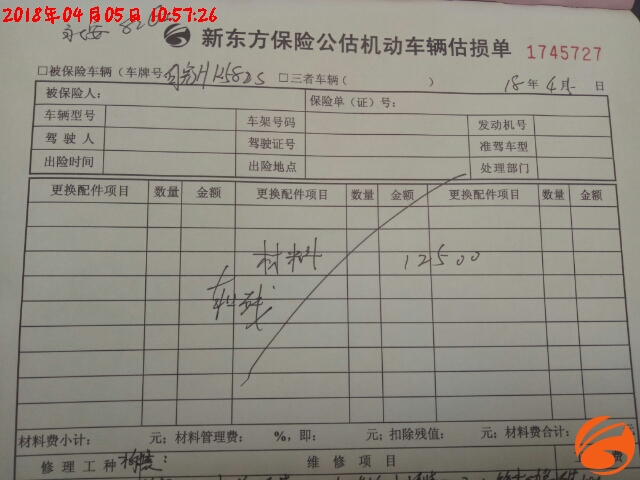 2018年04月05日 10:57:26
新东方保险公估机动车辆估损单 1745727
□被保险车辆（车牌号 □三者车辆（ ） 18年4月 日
被保险人： 保险单（证）号：
车辆型号 车架号码 发动机号
驾驶人 驾驶证号 准驾车型
出险时间 出险地点 处理部门
更换配件项目 数量 金额 更换配件项目 数量 金额 更换配件项目 数量 金额
材料 12500
材料费小计： 元；材料管理费： %，即： 元；扣除残值： 元；材料费合计： 元
修理工种 维修项目